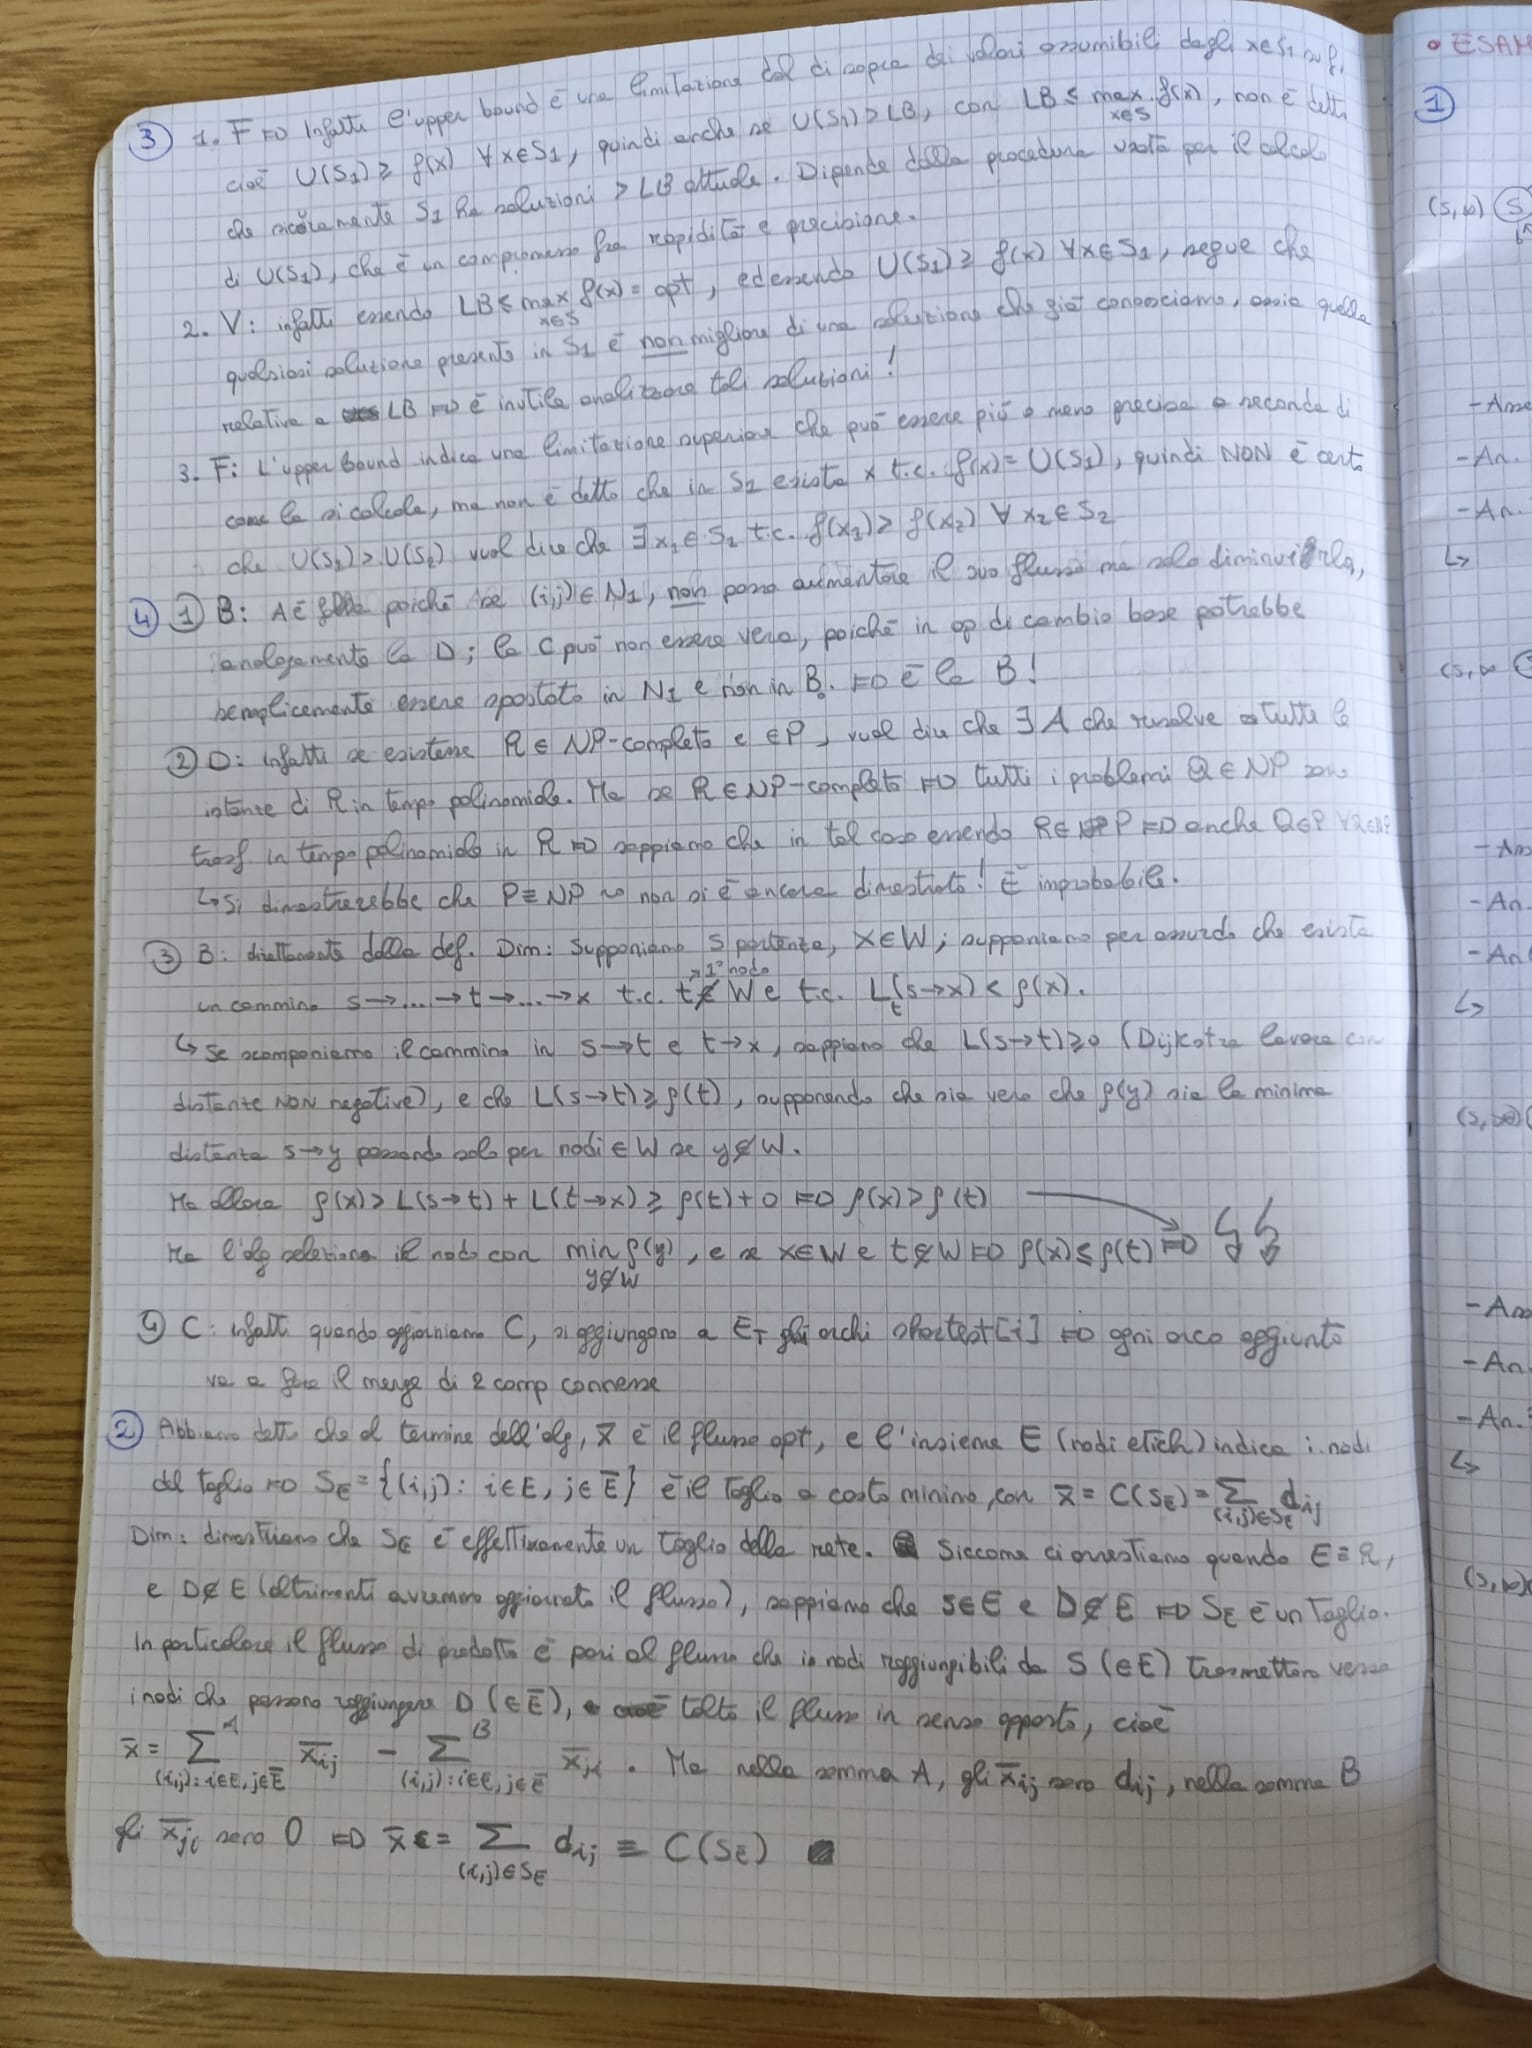 ③ 1. F ⇒ Infatti l'upper bound è una limitazione dal di sopra dei valori assumibili dagli x∈S1 su f,
cioè U(S1) ≥ f(x) ∀x∈S1, quindi anche se U(S1) > LB, con LB ≤ max x∈S f(x), non è detto
che sicuramente S1 ha soluzioni > LB attuale. Dipende dalla procedura usata per il calcolo
di U(S1), che è un compromesso fra rapidità e precisione.
2. V: infatti essendo LB ≤ max x∈S f(x) = opt, ed essendo U(S1) ≥ f(x) ∀x∈S1, segue che
qualsiasi soluzione presente in S1 è non migliore di una soluzione che già conosciamo, ossia quella
relativa a LB ⇒ è inutile analizzare tali soluzioni!
3. F: L'upper bound indica una limitazione superiore che può essere più o meno precisa a seconda di
come la si calcola, ma non è detto che in S1 esista x t.c. f(x) = U(S1), quindi NON è certo
che U(S1) > U(S2) vuol dire che ∃x1∈S1 t.c. f(x1) > f(x2) ∀x2∈S2
④ ① B: A è falsa poiché se (i,j)∈N1, non posso aumentare il suo flusso ma solo diminuirlo,
analogamente la D; la C può non essere vera, poiché in op di cambio base potrebbe
semplicemente essere spostato in N1 e non in B. ⇒ è la B!
② D: infatti se esistesse R ∈ NP-completo e ∈P, vuol dire che ∃ A che risolve tutte le
istanze di R in tempo polinomiale. Ma se R∈NP-completo ⇒ tutti i problemi Q∈NP sono
trasf. in tempo polinomiale in R ⇒ sappiamo che in tal caso essendo R∈P ⇒ anche Q∈P ∀Q∈NP
↳ Si dimostrerebbe che P≡NP → non si è ancora dimostrato! È improbabile.
③ B: direttamente dalla def. Dim: Supponiamo S partenza, x∈W; supponiamo per assurdo che esista
→ 1° nodo
un cammino s→...→t→...→x t.c. t∉W e t.c. L(s→x) < ρ(x).
t
↳ Se scomponiamo il cammino in s→t e t→x, sappiamo che L(s→t)≥0 (Dijkstra lavora con
distanze NON negative), e che L(s→t) ≥ ρ(t), supponendo che sia vero che ρ(y) sia la minima
distanza s→y passando solo per nodi ∈W se y∉W.
Ma allora ρ(x) > L(s→t) + L(t→x) ≥ ρ(t) + 0 ⇒ ρ(x) > ρ(t)
Ma l'alg seleziona il nodo con min y∉W ρ(y), e se x∈W e t∉W ⇒ ρ(x) ≤ ρ(t) ⇒
④ C: infatti quando aggiorniamo C, si aggiungono a ET gli archi shortest[i] ⇒ ogni arco aggiunto
va a fare il merge di 2 comp connesse
② Abbiamo detto che al termine dell'alg, x̄ è il flusso opt, e l'insieme E (nodi etich) indica i nodi
del taglio ⇒ SE = {(i,j): i∈E, j∈Ē} è il taglio a costo minimo, con x̄ = C(SE) = Σ(i,j)∈SE dij
Dim: dimostriamo che SE è effettivamente un taglio della rete. Siccome ci arrestiamo quando E≡R,
e D∉E (altrimenti avremmo aggiornato il flusso), sappiamo che S∈E e D∉E ⇒ SE è un taglio.
In particolare il flusso di prodotto è pari al flusso che i nodi raggiungibili da S (∈E) trasmettono verso
i nodi che possono raggiungere D (∈Ē), tolto il flusso in senso opposto, cioè
x̄ = Σ^A (i,j): i∈E, j∈Ē x̄ij - Σ^B (i,j): i∈E, j∈Ē x̄ji. Ma nella somma A, gli x̄ij sono dij, nella somma B
gli x̄ji sono 0 ⇒ x̄ = Σ(i,j)∈SE dij ≡ C(SE)
• ESAM
①
(S,∞) S
- An.
- An.
↳
(S,∞
- An.
↳
- An.
- An.
↳